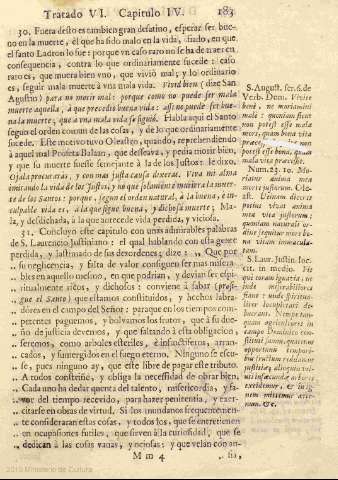 Tratado VI. Capitulo IV. 183
30. Fuera desto es tambien gran desatino, esperar ser bue-
no en la muerte, el que ha sido malo en la vida, fiado, en que
el santo Ladron lo fue: porque vn caso raro no se ha de traer en
consequencia, contra lo que ordinariamente sucede: caso
raro es, que muera bien vno, que vivió mal; y lo ordinario
es, seguir mala muerte à vna mala vida. Vivid bien (dize San
Agustin) para no morir mal: porque como no puede ser mala
muerte aquella, à que precediò buena vida: assi no puede ser bue-
na la muerte, que à vna mala vida se siguiò. Habla aqui el Santo
segun el orden comun de las cosas, y de lo que ordinariamente
sucede. Este motivo tuvo Oleastro, quando, reprehendiendo
à aquel mal Profeta Balaan, que desseava, y pedia morir bien,
y que su muerte fuesse semejante à la de los Justos: le dixo,
Ojala procuraras, y con mas justa causa dixeras. Viva mi alma
imitando la vida de los Justos, y no que solamente muriera la muer-
te de los Santos: porque, segun el orden natural, à la buena, e in-
culpable vida es, à la que sigue buena, y dichosa muerte; Ma-
la, y desdichada, à la que aorecede vida perdida, y viciosa.
31. Concluyo este capitulo con vnas admirables palabras
de S. Laurencio Justiniano: el qual hablando con esta gente
perdida, y lastimado de sus desordenes; dize: ,, Que por
,, su negligencia, y falta de valor consiguen ser mas misera-
,, bles en aquello mesmo, en que podrian, y devian ser espi-
,, ritualmente ricos, y dichosos: conviene à saber (prosi-
gue el Santo) que estamos constituidos, y hechos labra-
,, dores en el campo del Señor: paraque en los tiempos com-
,, petentes paguemos, y bolvamos los frutos, que à su due-
,, ño de justicia devemos, y que faltando à esta obligacion,
,, seremos, como arboles esteriles, è infructiferos, arran-
,, cados, y sumergidos en el fuego eterno. Ninguno se escu-
,, se, pues ninguno ay, que este libre de pagar este tributo.
,, A todos constriñe, y obliga la necessidad de obrar bien.
,, Cada vno ha de dar quenta del talento, misericordia, y fa-
,, vor del tiempo recevido, para hazer penitencia, y exer-
,, citarse en obras de virtud. Si los mundanos frequentemen-
,, te consideraran estas cosas, y todos los, que se entretienen
,, en ocupasiones futiles, que sirven à la curiosidad, que se
,, dedican à las cosas vanas, y ociosas: y que velan con an-
M m 4 ,, sia,
S. August. ser. 6. de
Verb. Dom. Vivite
benè, ne moriamini
malè: quoniam sicut
non potest esse mala
mors, quam bona vita
præcessit: ne non
potest esse bona, quam
mala vita præcessit.
Num. 23. 10. Mo-
riatur anima mea
morte justorum. Ole-
ast. Utinam diceres
potius vivat anima
mea vita justorum;
quoniam naturali or-
dine sequitur mors bo-
na vitam immacula-
tam.
S. Laur. Justin.
cit. in medio. Fit
qui coram
inde miserabiliores
fiant: unde spiritua-
liter locupletari de-
buerant. Nempe tan-
quam agricultores in
campo Dominico con-
stituti sumus, quatenus
opportunis tempori-
bus fructum reddamus
justitiæ, alioquin ve-
lut infæcundæ arbores
exidemur, & in ig-
nem mittemur æter-
num. &c.
2010 Ministerio de Cultura